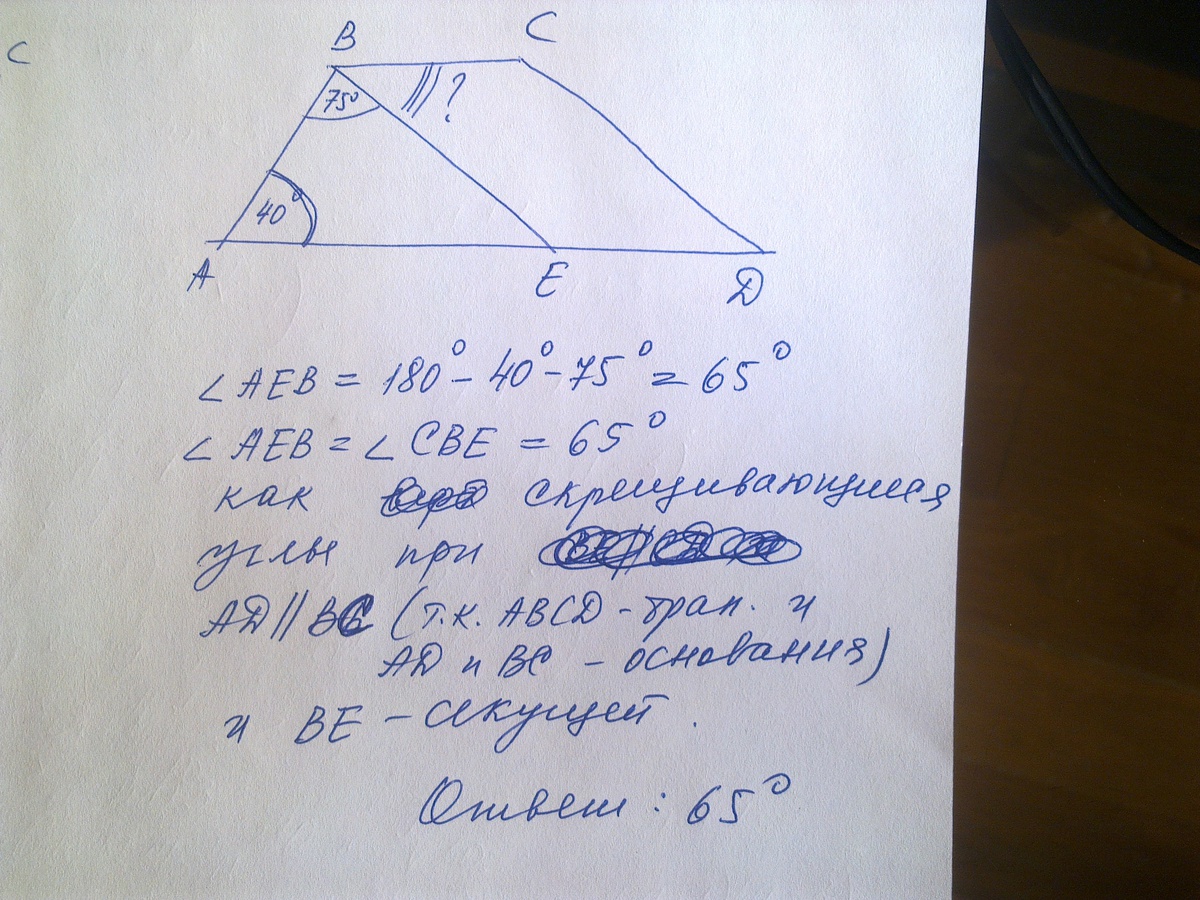 C
B
C
75°
?
40°
A
E
D
∠AEB = 180° - 40° - 75° = 65°
∠AEB = ∠CBE = 65°
как скрещивающимся
углы при
AD || BC (т.к. ABCD - трап. и
AD и BC - основания)
и BE - секущей.
Ответ: 65°